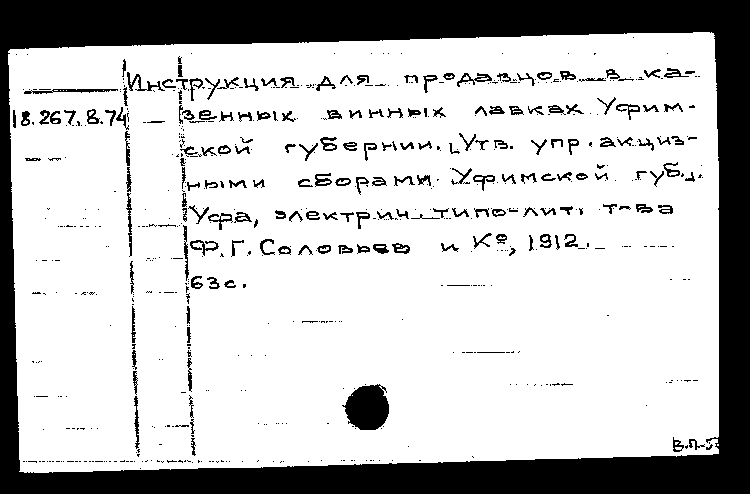 Инструкция для продавцов в ка-
18.267.8.74 зенных винных лавках Уфим-
ской губернии. [Утв. упр. акциз-
ными сборами Уфимской губ.].
Уфа, электрич. типо-лит. т-ва
Ф. Г. Соловьев и К°, 1912.
63 с.
В.П-5